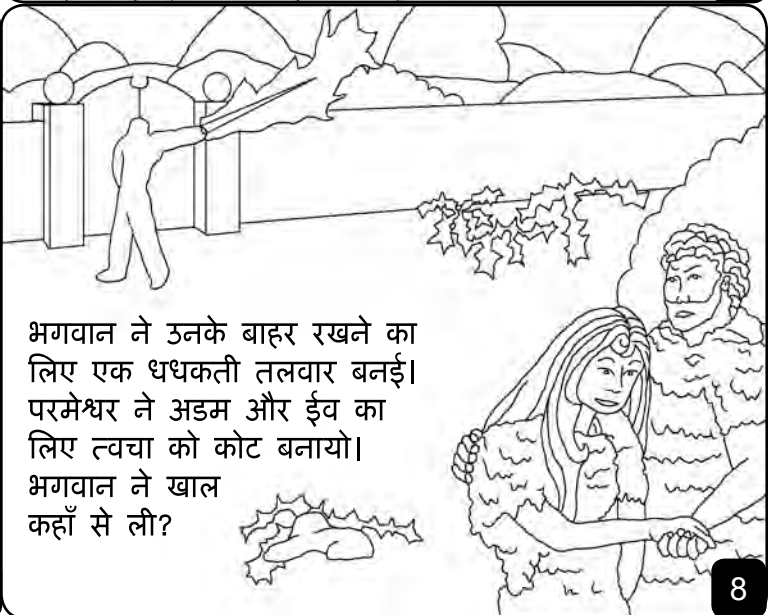 भगवान ने उनके बाहर रखने का
लिए एक धधकती तलवार बनई।
परमेश्वर ने अडम और ईव का
लिए त्वचा को कोट बनायो।
भगवान ने खाल
कहाँ से ली?
8